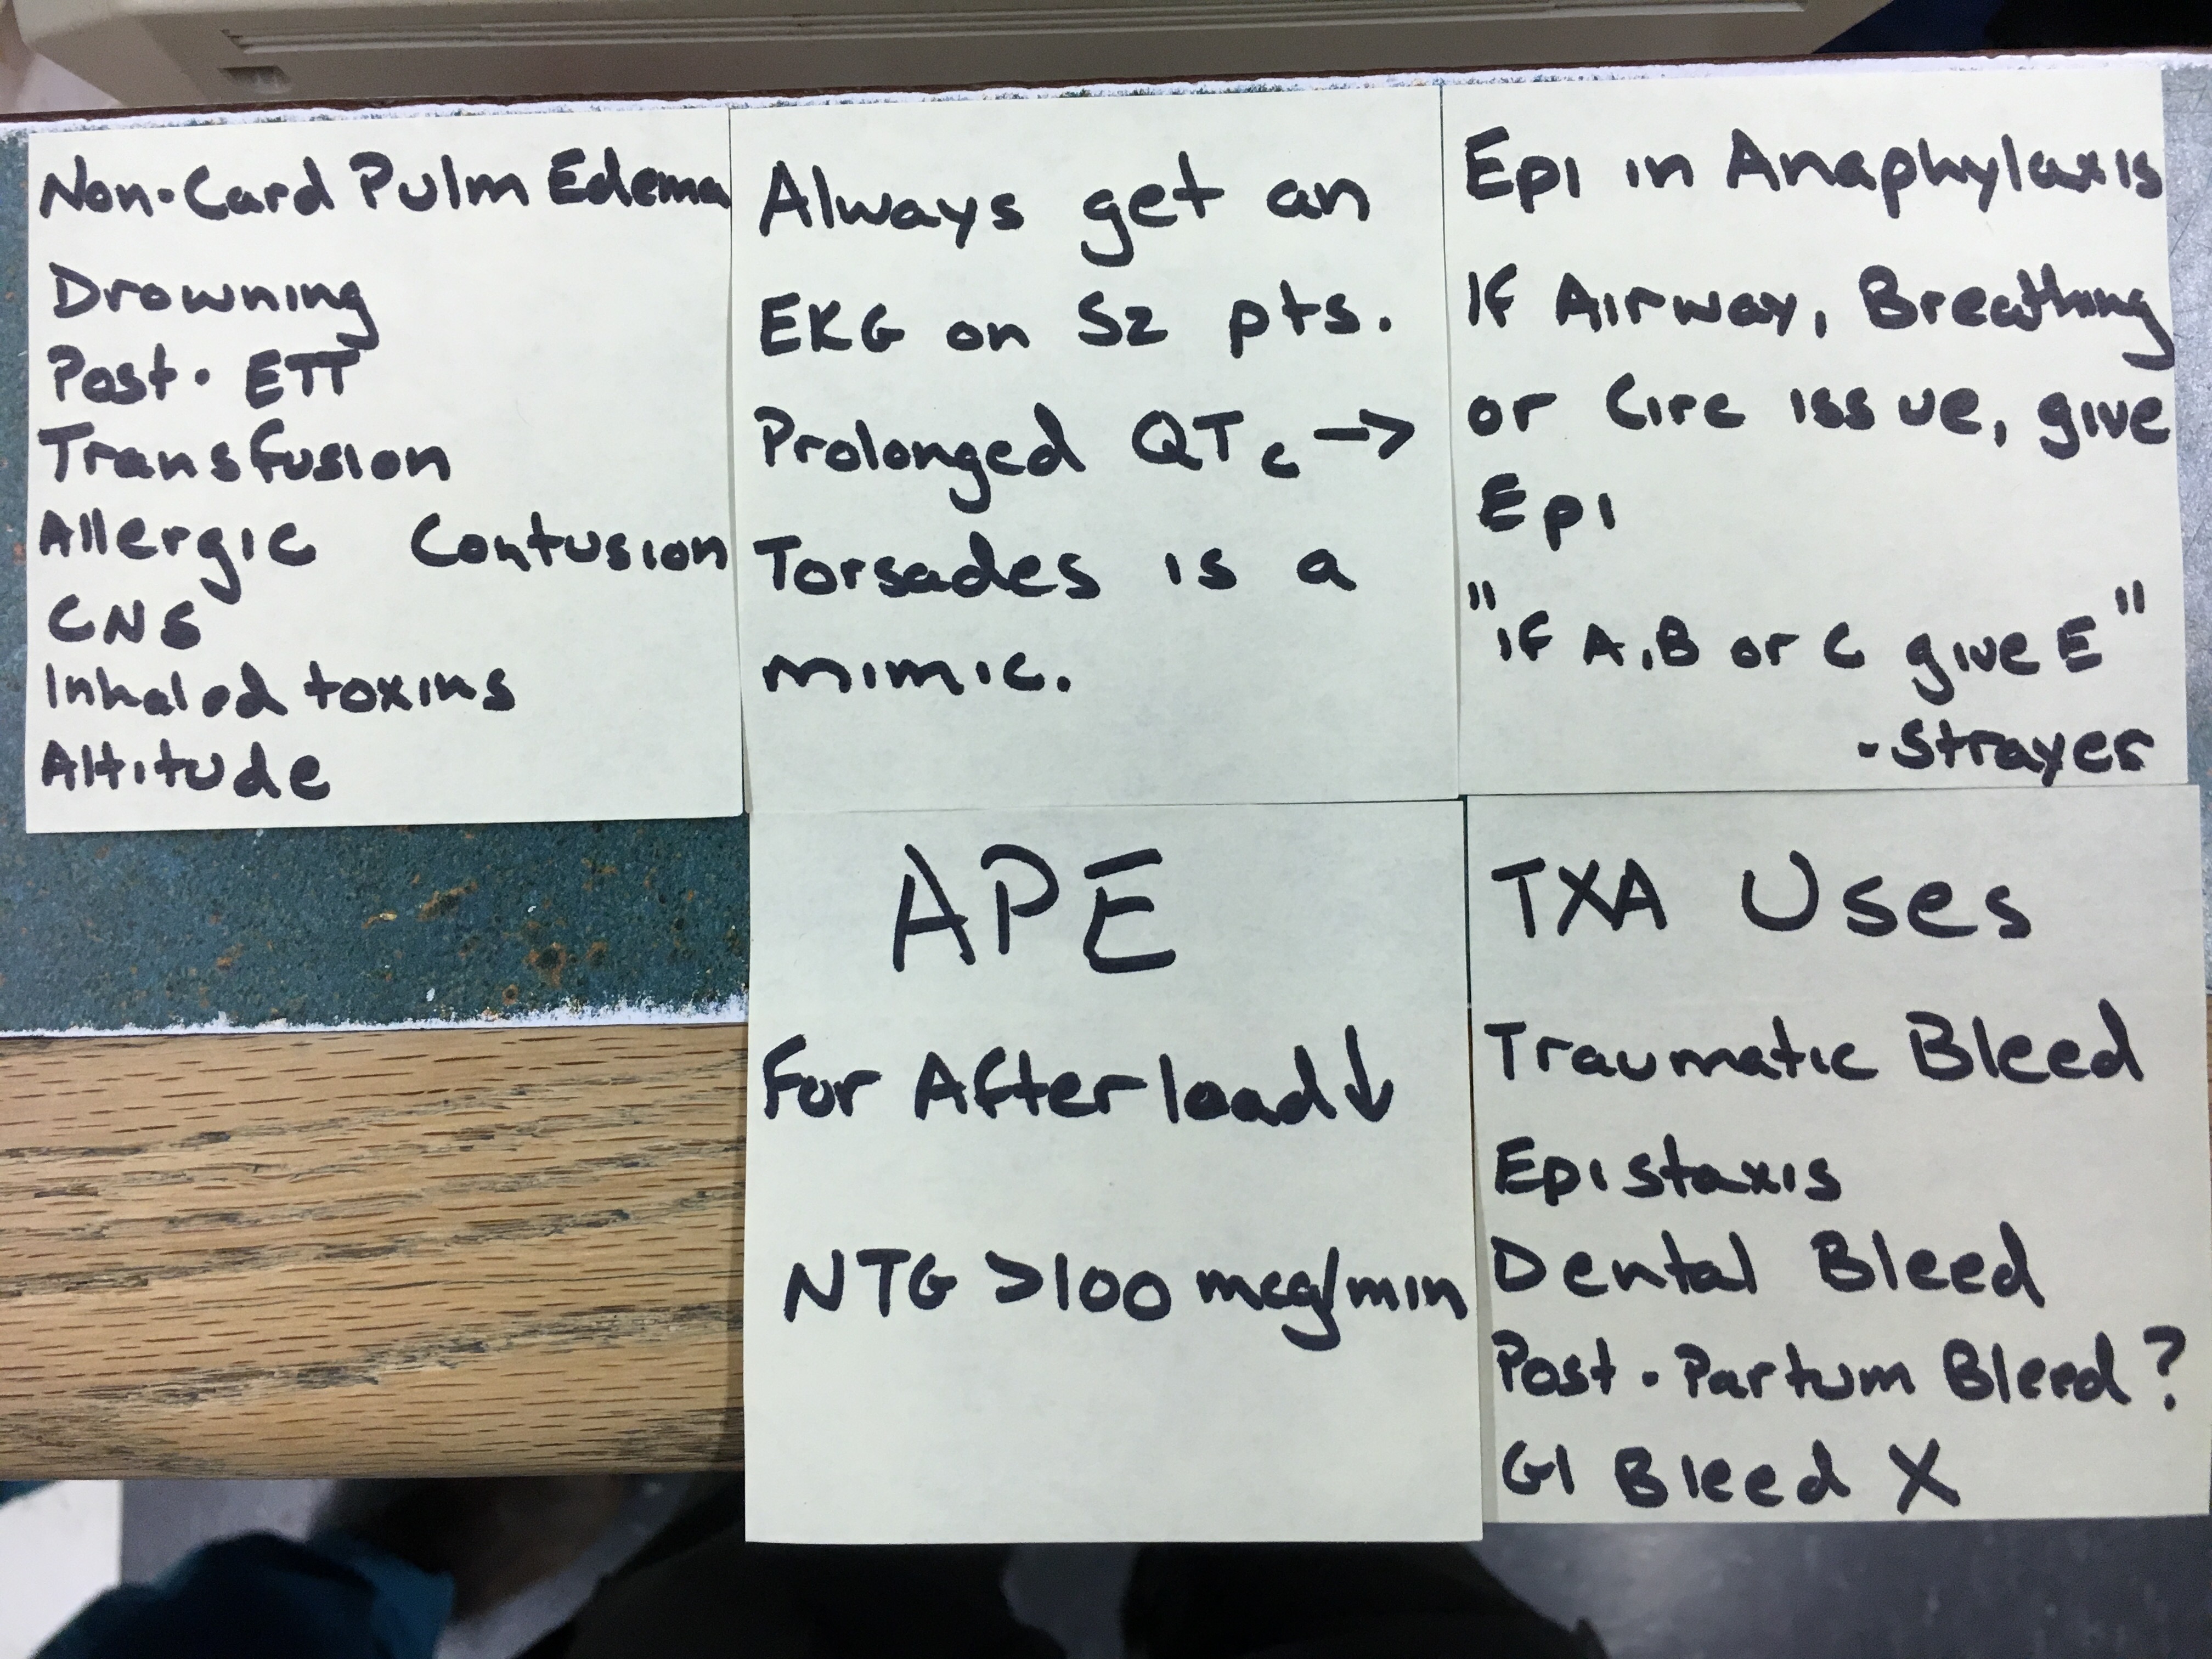 Non-Card Pulm Edema
Drowning
Post-ETT
Transfusion
Allergic Contusion
CNS
Inhaled toxins
Altitude
Always get an
EKG on Sz pts.
Prolonged QTc →
Torsades is a
mimic.
Epi in Anaphylaxis
If Airway, Breathing
or Circ issue, give
Epi
"if A, B or C give E"
-Strayer
APE
For Afterload↓
NTG >100 mcg/min
TXA Uses
Traumatic Bleed
Epistaxis
Dental Bleed
Post-Partum Bleed?
GI Bleed X